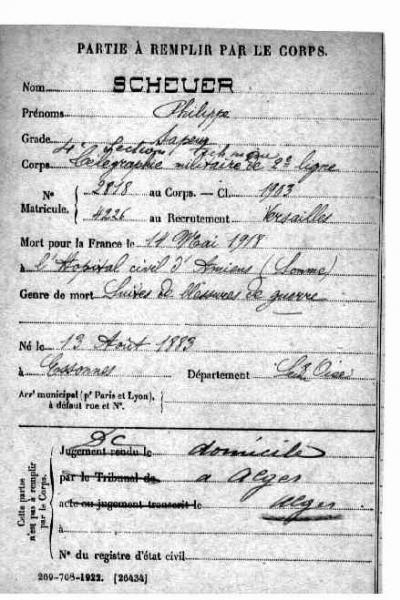 PARTIE À REMPLIR PAR LE CORPS.
Nom SCHEUER
Prénoms Philippe
Grade Sapeur
4e Section technique
Corps Télégraphie militaire de 2e ligne
Nº Matricule. { 2818 au Corps. — Cl. 1903
4226 au Recrutement Versailles
Mort pour la France le 14 Mai 1918
à l'Hopital civil d'Amiens (Somme)
Genre de mort Suites de blessures de guerre
Né le 13 Août 1883
à Essonnes Département Sne Oise
Arrt municipal (pr Paris et Lyon), à défaut rue et Nº.
Cette partie n'est pas à remplir par le Corps.
DC
Jugement rendu le domicile
par le Tribunal de a Alger
acte ou jugement transcrit le Alger
à
Nº du registre d'état civil
269-708-1922. [26434]